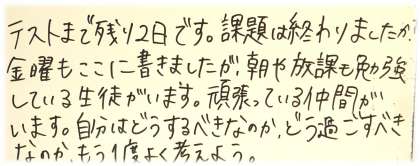 テストまで残り2日です。課題は終わりましたか
金曜もここに書きましたが、朝や放課も勉強
している生徒がいます。頑張っている仲間が
います。自分はどうするべきなのか、どう過ごすべき
なのか、もう1度よく考えよう。